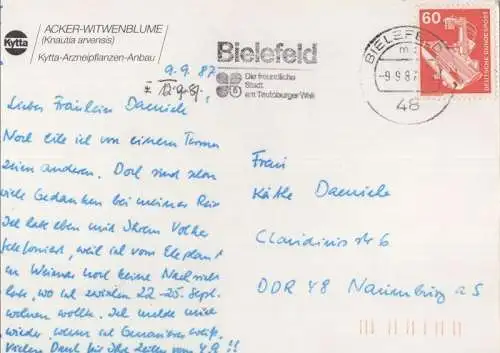 Kytta
ACKER-WITWENBLUME
(Knautia arvensis)
Kytta-Arzneipflanzen-Anbau
9. 9. 87
* 12.9.87.
Bielefeld
Die freundliche
Stadt
am Teutoburger Wald
BIELEFELD
-9.9.87
48
60
DEUTSCHE BUNDESPOST
Liebes Fräulein Daenicke,
Noch eile ich von einem Termin
zum anderen. Doch sind schon
viele Gedanken bei meiner Reise
Ich habe eben mit Ihrem Volker
telefoniert, weil ich vom Elephant
in Weimar noch keine Nachricht
habe, wo ich zwischen 22.-25. Sept.
wohnen sollte. Ich melde mich
wieder, wenn ich Genaueres weiß.
Vielen Dank für Ihre Zeilen vom 4.9.!!
Frau
Käthe Daenicke
Claudiusstr 6
DDR 48 Naumburg a S